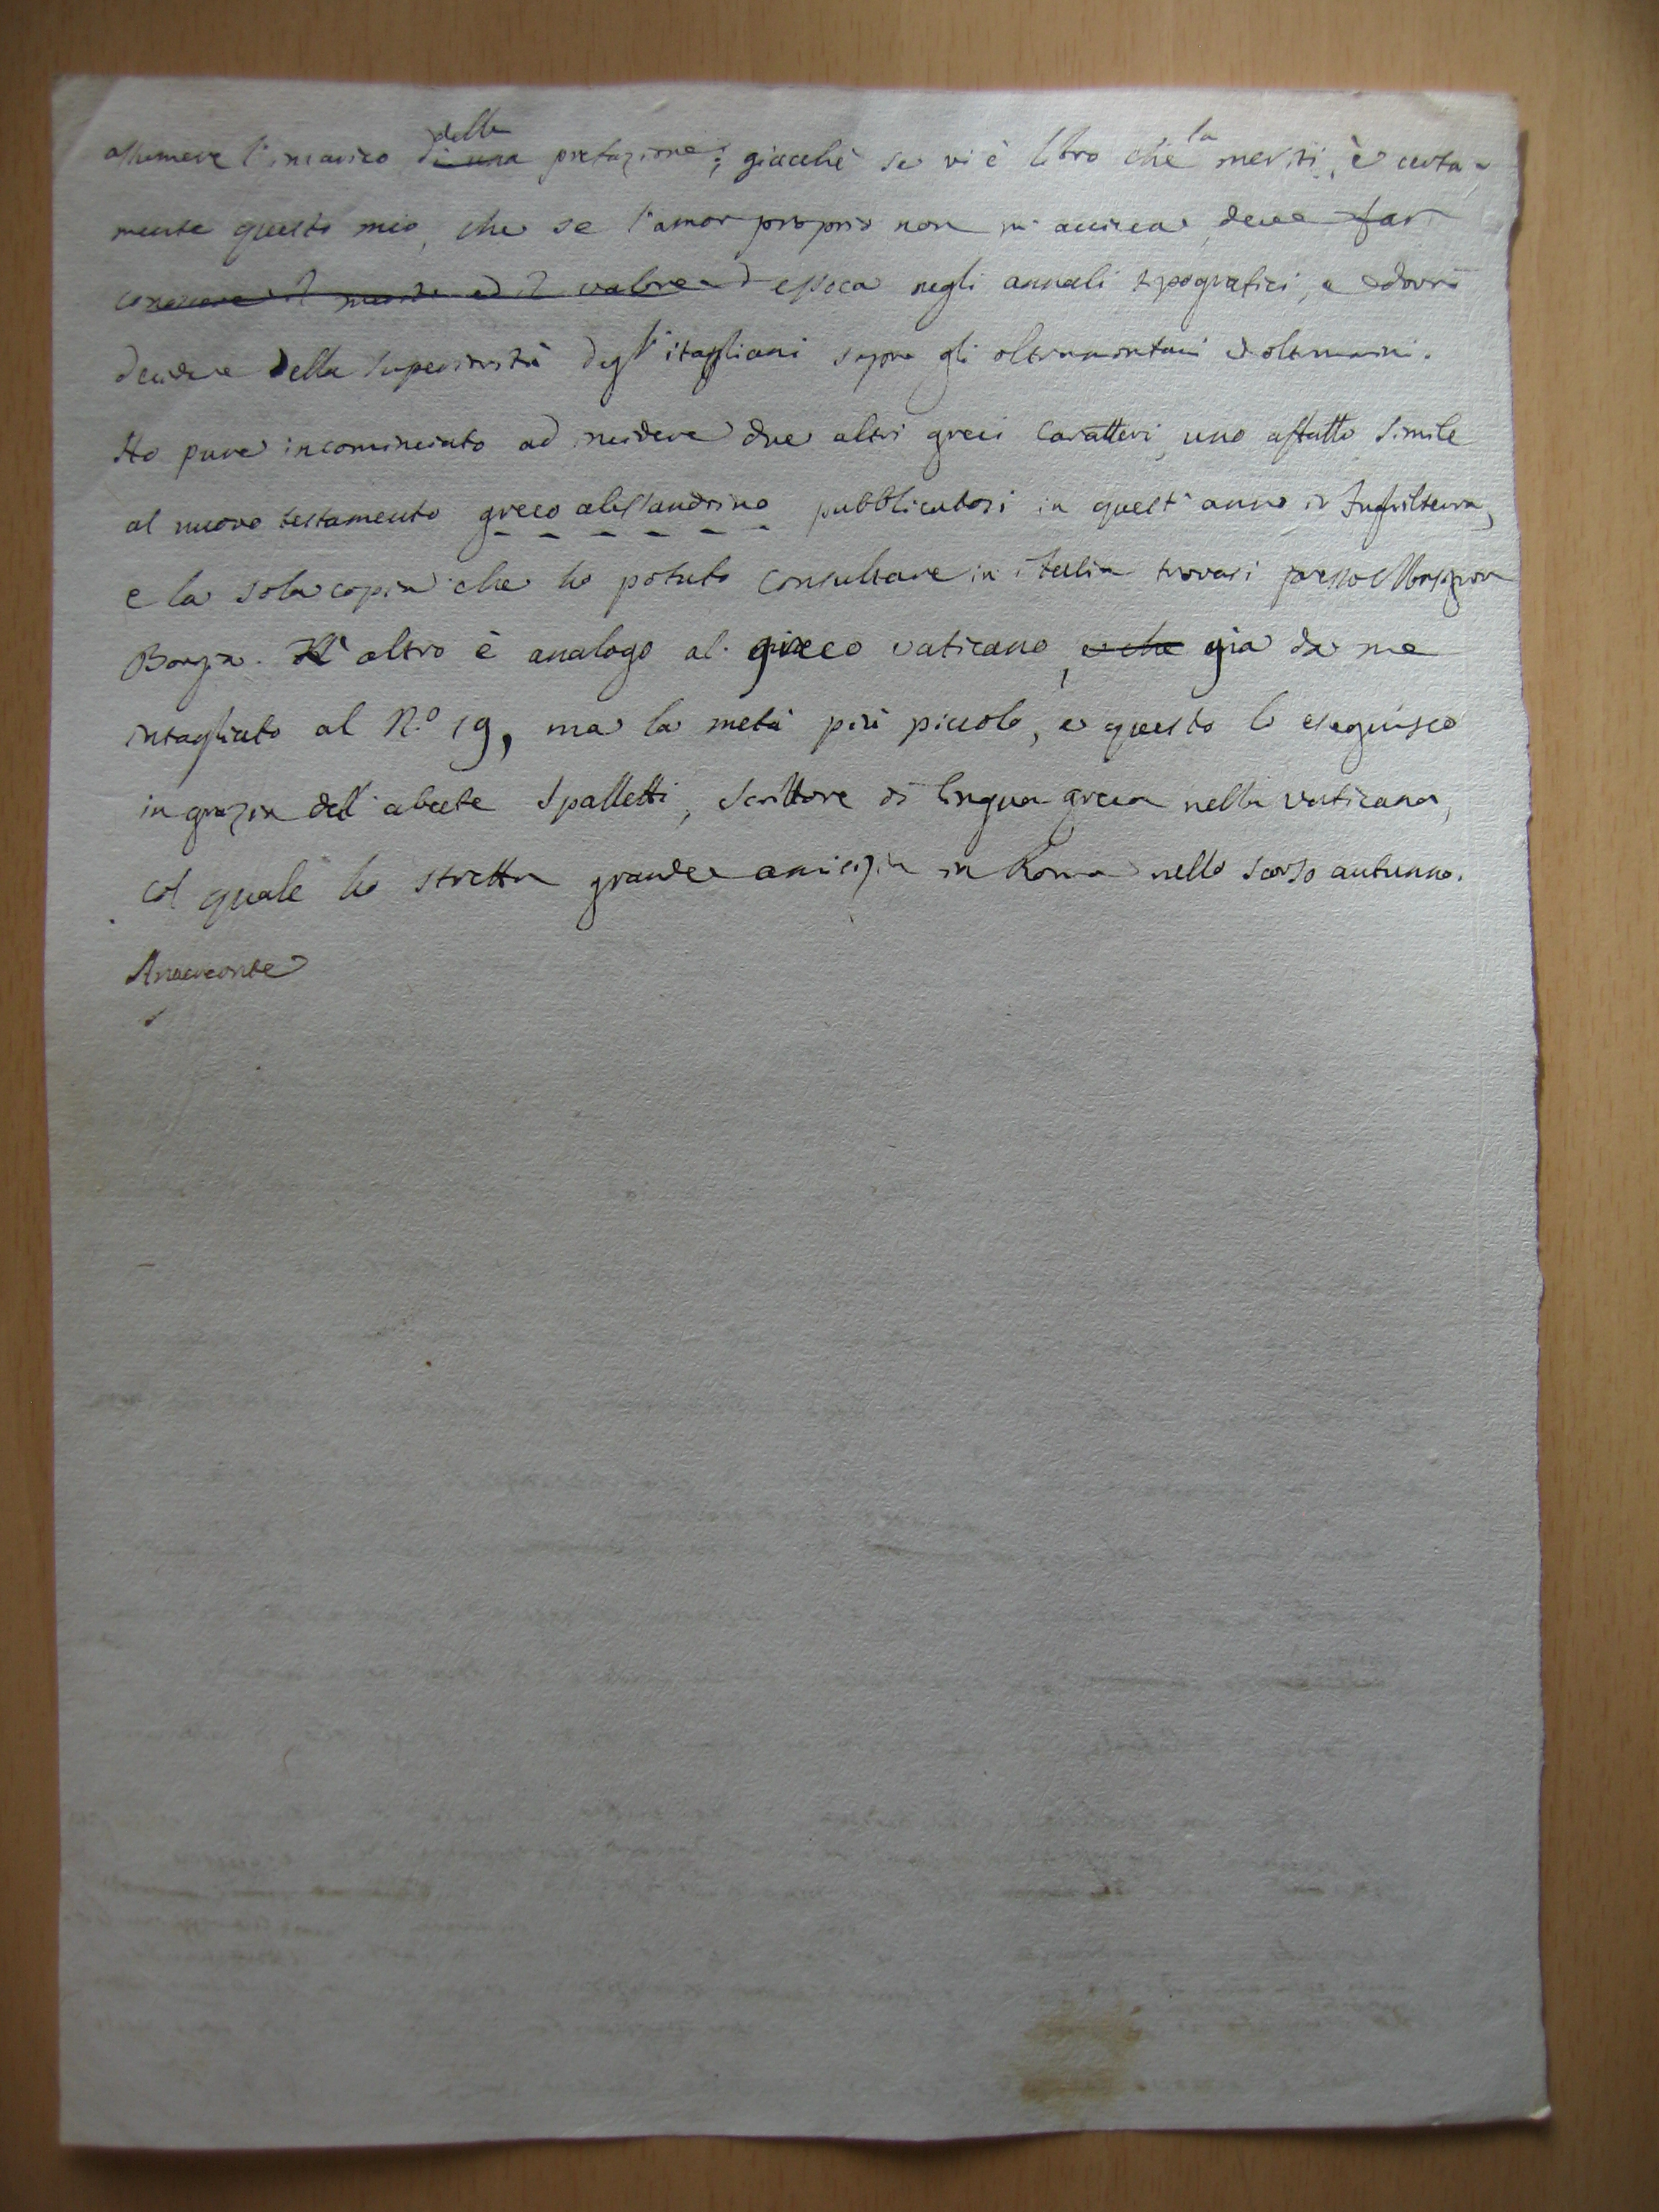 assumere l'incarico di una della prefazione; giacchè se vi è libro che la meriti, è certa-
mente questo mio, che se l'amor proprio non m'acciera, deve far
conoscere il merito ed il valore d epoca negli annali tipografici, e dovrà
decidere della superiorità degl'itagliani sopra gli oltramontani ed oltramarini.
Ho pure incominciato ad incidere due altri greci caratteri, uno affatto simile
al nuovo testamento greco alessandrino pubblicatosi in quest'anno in Inghilterra,
e la sola copia che ho potuto consultare in Italia trovasi presso Monsignor
Borgia. L'altro è analogo al greco vaticano, e che già da me
intagliato al N.º 19, ma la metà più piccolo, e questo lo eseguisco
in grazia dell'abate Spalletti, scrittore di lingua greca nella vaticana,
col quale ho stretta grande amicizia in Roma nello scorso autunno.
Anacreonte